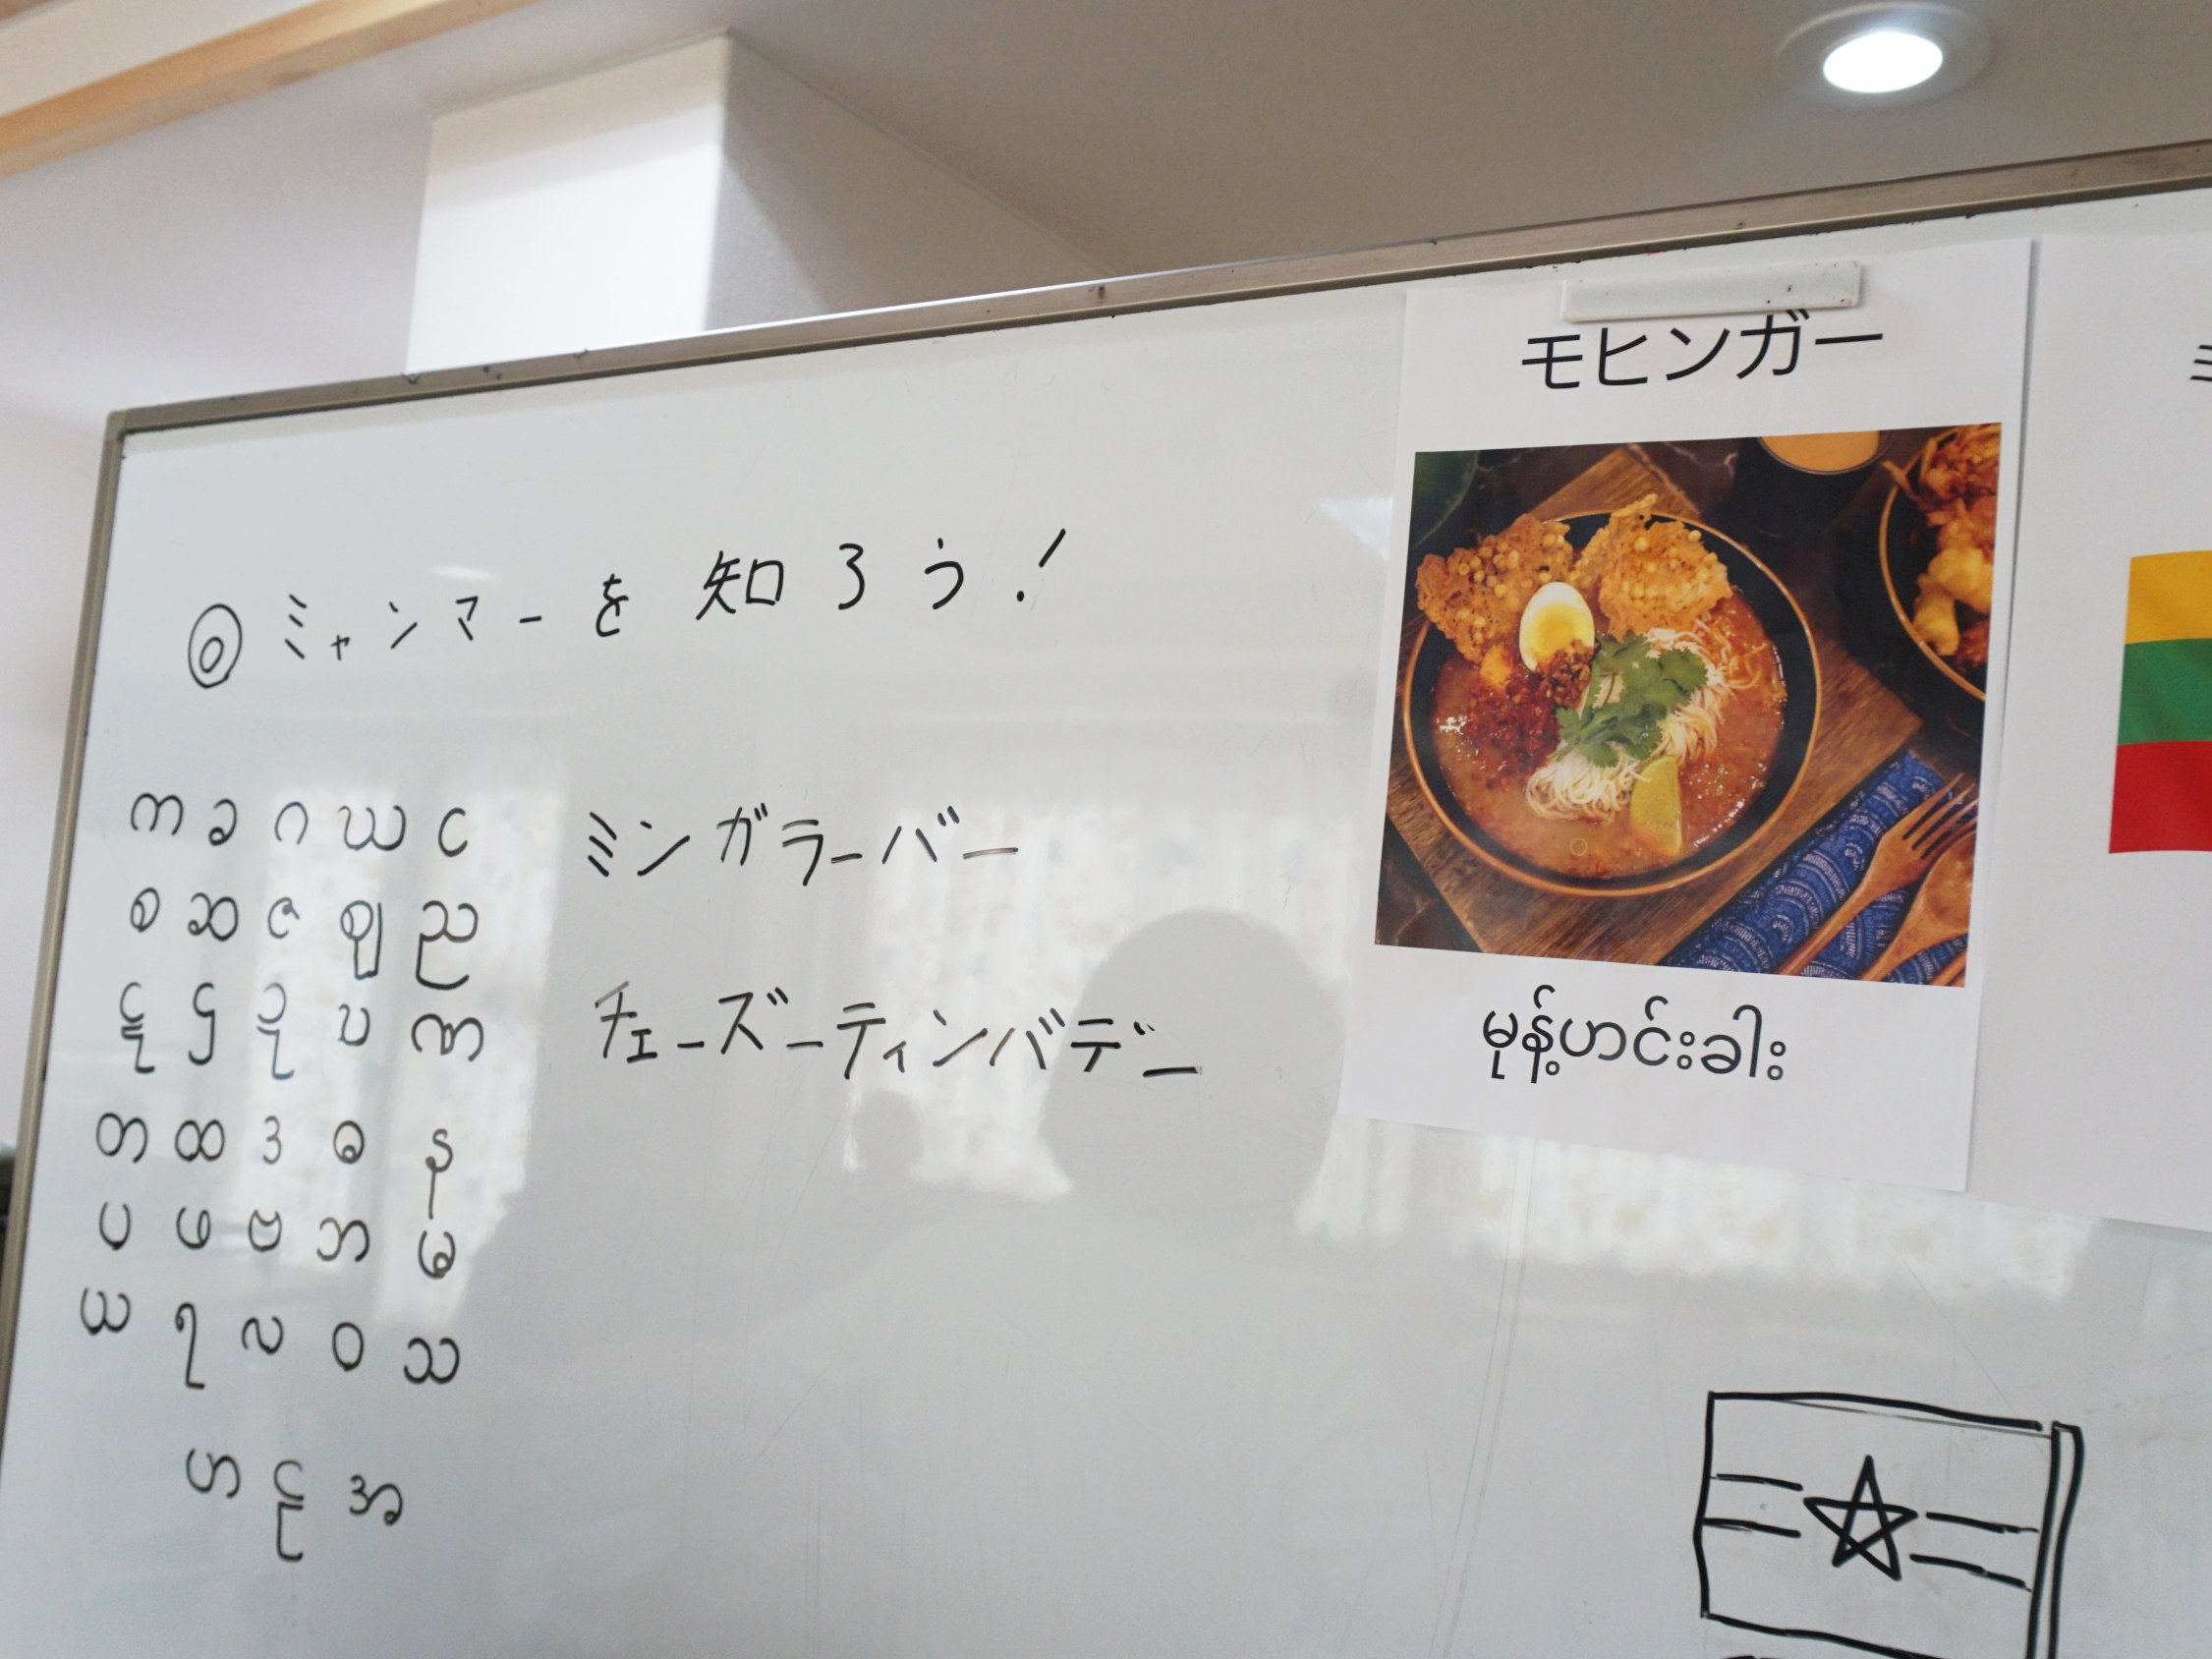 ◎ミャンマーを知ろう!
က ခ ဂ ဃ င
စ ဆ ဇ ဈ ည
ဋ ဌ ဍ ဎ ဏ
တ ထ ဒ ဓ န
ပ ဖ ဗ ဘ မ
ယ ရ လ ဝ သ
ဟ ဠ အ
ミンガラーバー
チェーズーティンバデー
モヒンガー
မုန့်ဟင်းခါး
ミ